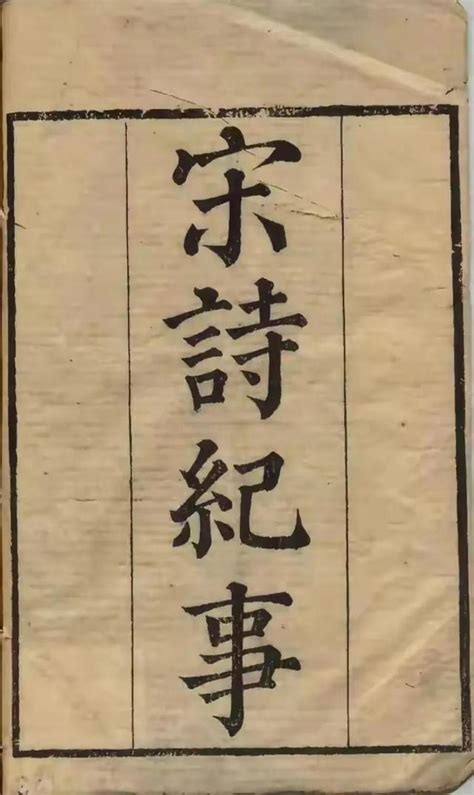 宋詩紀事